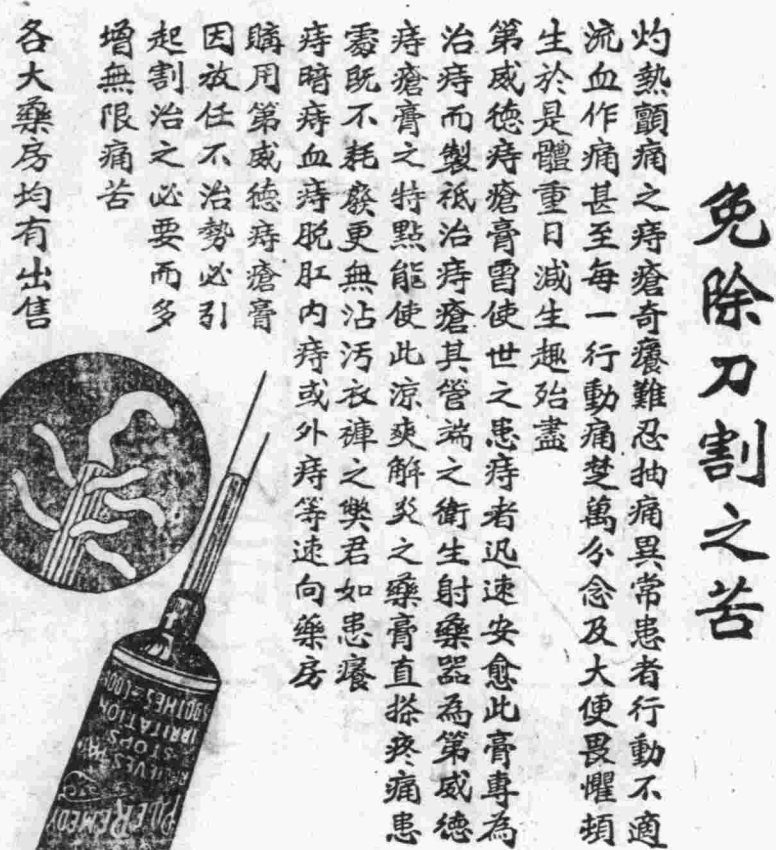 免除刀割之苦
灼熱顫痛之痔瘡奇癢難忍抽痛異常患者行動不適
流血作痛甚至每一行動痛楚萬分念及大便畏懼頓
生於是體重日減生趣殆盡
第威德痔瘡膏嘗使世之患痔者迅速安愈此膏專為
治痔而製祗治痔瘡其管端之衛生射藥器為第威德
痔瘡膏之特點能使此涼爽解炎之藥膏直搽疼痛患
處既不耗廢更無沾污衣褲之弊君如患癢
痔暗痔血痔脫肛內痔或外痔等速向藥房
購用第威德痔瘡膏
因放任不治勢必引
起割治之必要而多
增無限痛苦
各大藥房均有出售
PILE REMEDY
STOPS
IRRITATION
SOOTHES